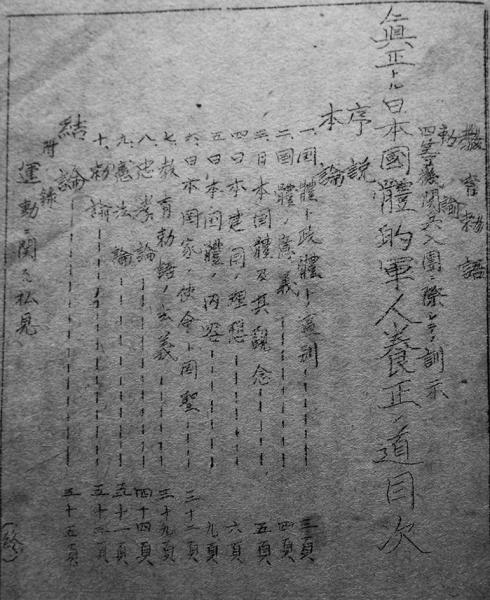 教育勅語
勅諭
四等機関兵入團ニ際シテノ訓示
眞正ナル日本國體的軍人養正ノ道目次
序説
本論
一、国體ト政體ト區別 三頁
二、国體ノ意義 四頁
三、日本国體及其觀念 五頁
四、日本建国理想 六頁
五、日本国體ノ内容 九頁
六、日本国家ノ使命ト国聖 三十二頁
七、教育勅語ノ玄義 三十九頁
八、忠孝論 四十四頁
九、憲法論 五十一頁
十、勅諭 五十三頁
結論 五十五頁
附録
運動ニ関スル私見
(終)